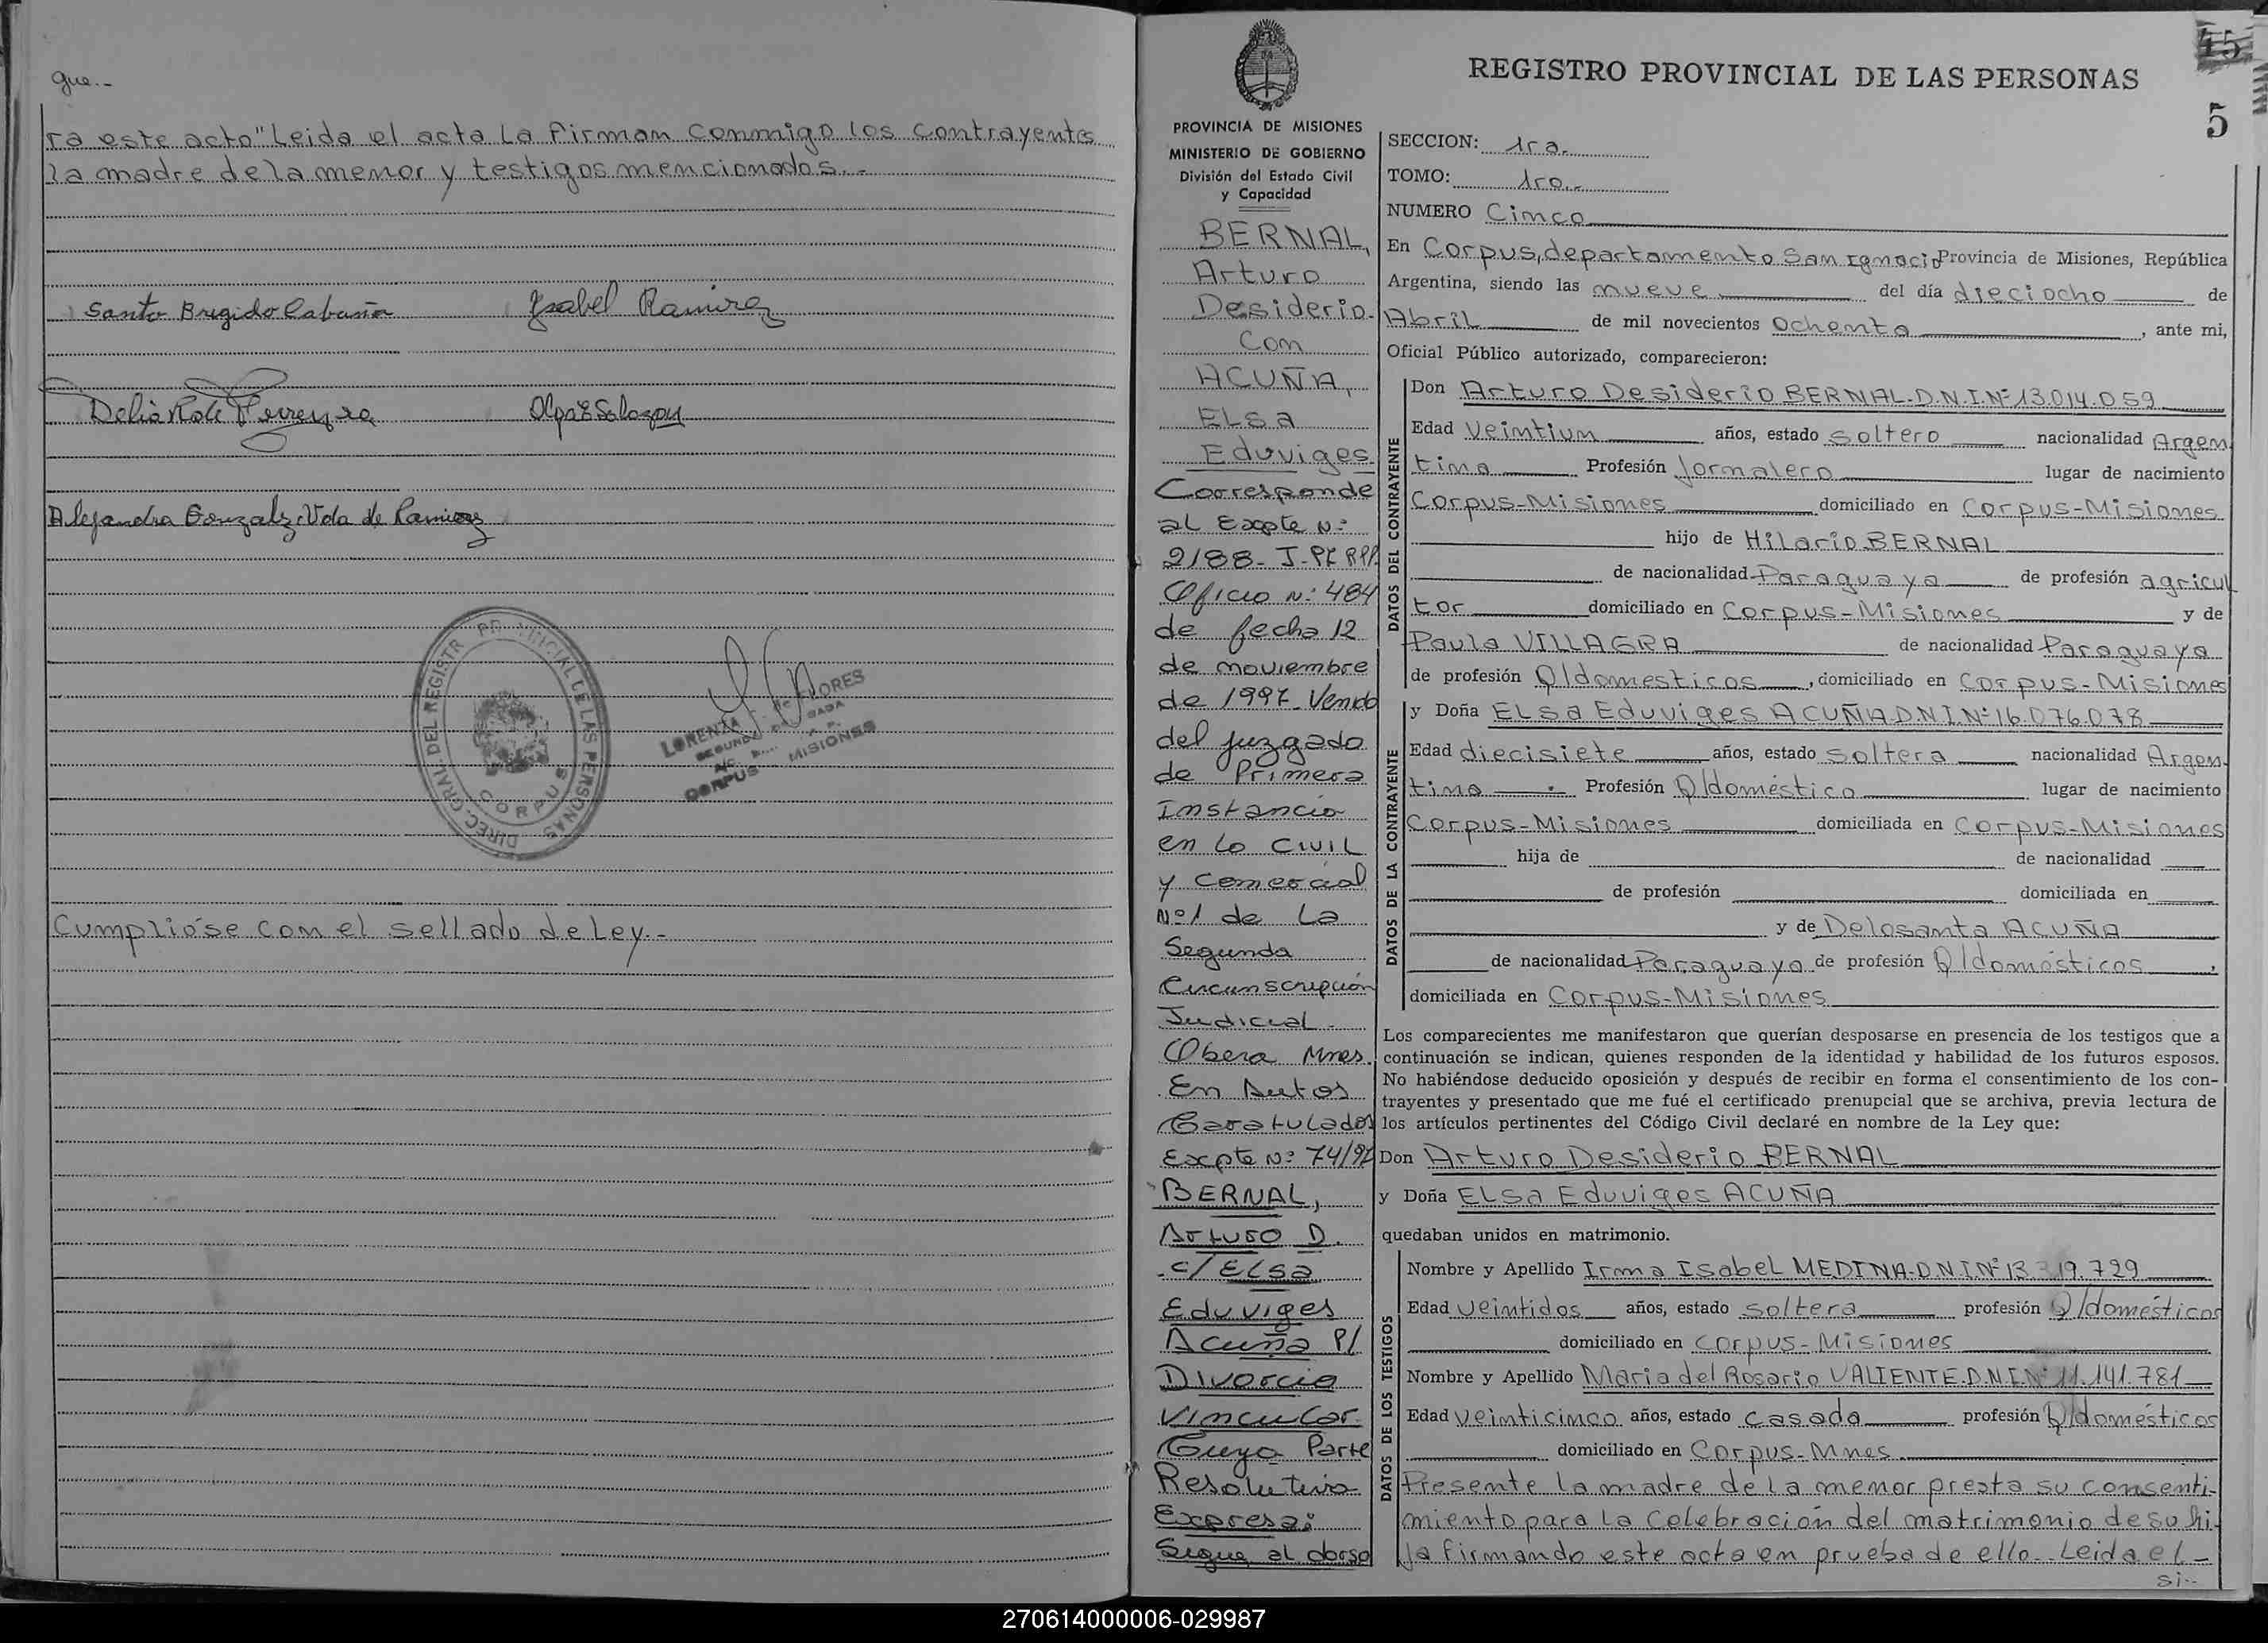 que.-
ra este acto" Leida el acta La firman conmigo los contrayentes
la madre de la menor y testigos mencionados.-
Santo Brigido Cabaña Ysabel Ramirez
Delia Rosa Ferreyra Olga E Salazar
Alejandra Gonzalez Vda de Ramirez
DIREC. GRAL. DEL REGISTR PROVINCIAL DE LAS PERSONAS
CORPUS
LORENZA FLORES
CORPUS MISIONES
Cumplióse con el sellado de Ley.-
REGISTRO PROVINCIAL DE LAS PERSONAS
5
PROVINCIA DE MISIONES
MINISTERIO DE GOBIERNO
División del Estado Civil
y Capacidad
BERNAL,
Arturo
Desiderio.
Con
ACUÑA,
ELSA
Eduviges
Corresponde
al Expte Nº
2188- J-
Oficio Nº 484
de fecha 12
de noviembre
de 1997- Venido
del juzgado
de Primera
Instancia
en Lo CIVIL
y Comercial
Nº 1 de La
Segunda
Circunscripción
Judicial -
Obera Mnes.
En Autos
Caratulados
Expte Nº 74/97
BERNAL,
Arturo D.
c/ ELSA
Eduviges
Acuña P/
Divorcio
Vincular
Cuya Parte
Resolutiva
Expresa:
Sigue al dorso
SECCION: 1ra.
TOMO: 1ro.-
NUMERO Cinco
En Corpus, departamento San Ignacio Provincia de Misiones, República
Argentina, siendo las nueve del día dieciocho de
Abril de mil novecientos ochenta, ante mi,
Oficial Público autorizado, comparecieron:
DATOS DEL CONTRAYENTE
Don Arturo Desiderio BERNAL-D.N.I.Nº 13.014.059
Edad Veintiun años, estado soltero nacionalidad Argen
tina Profesión Jornalero lugar de nacimiento
Corpus-Misiones domiciliado en Corpus-Misiones
hijo de Hilario BERNAL
de nacionalidad Paraguaya de profesión agricul
tor domiciliado en Corpus-Misiones y de
Paula VILLAGRA de nacionalidad Paraguaya
de profesión Q/domesticos, domiciliado en Corpus-Misiones
DATOS DE LA CONTRAYENTE
y Doña ELSa Eduviges ACUÑA D.N.I.Nº 16.076.078
Edad diecisiete años, estado soltera nacionalidad Argen-
tina Profesión Q/doméstico lugar de nacimiento
Corpus-Misiones domiciliada en Corpus-Misiones
hija de de nacionalidad
de profesión domiciliada en
y de Delosanta ACUÑA
de nacionalidad Paraguaya de profesión Q/domésticos,
domiciliada en Corpus-Misiones
Los comparecientes me manifestaron que querían desposarse en presencia de los testigos que a
continuación se indican, quienes responden de la identidad y habilidad de los futuros esposos.
No habiéndose deducido oposición y después de recibir en forma el consentimiento de los con-
trayentes y presentado que me fué el certificado prenupcial que se archiva, previa lectura de
los artículos pertinentes del Código Civil declaré en nombre de la Ley que:
Don Arturo Desiderio BERNAL
y Doña ELSa Eduviges ACUÑA
quedaban unidos en matrimonio.
DATOS DE LOS TESTIGOS
Nombre y Apellido Irma Isabel MEDINA-D.N.I.Nº
Edad veintidos años, estado soltera profesión Q/domésticos
domiciliado en Corpus-Misiones
Nombre y Apellido Maria del Rosario VALIENTE.D.N.I.Nº 11.141.781
Edad veinticinco años, estado casada profesión Q/domésticos
domiciliado en Corpus-Mnes.
Presente la madre de la menor presta su consenti-
miento para la celebración del matrimonio de su hi-
ja firmando este acta en prueba de ello.- Leida el-
si--
270614000006-029987